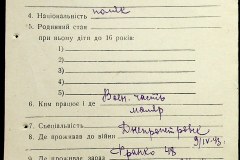 4. Національність поляк
5. Родинний стан
при ньому діти до 16 років:
1)
2)
3)
4)
5)
6. Ким працює і де Воен. часть
маляр
7. Спеціяльність
8. Де проживав до війни Днепропетровск
9. Де проживає зараз Франко 43